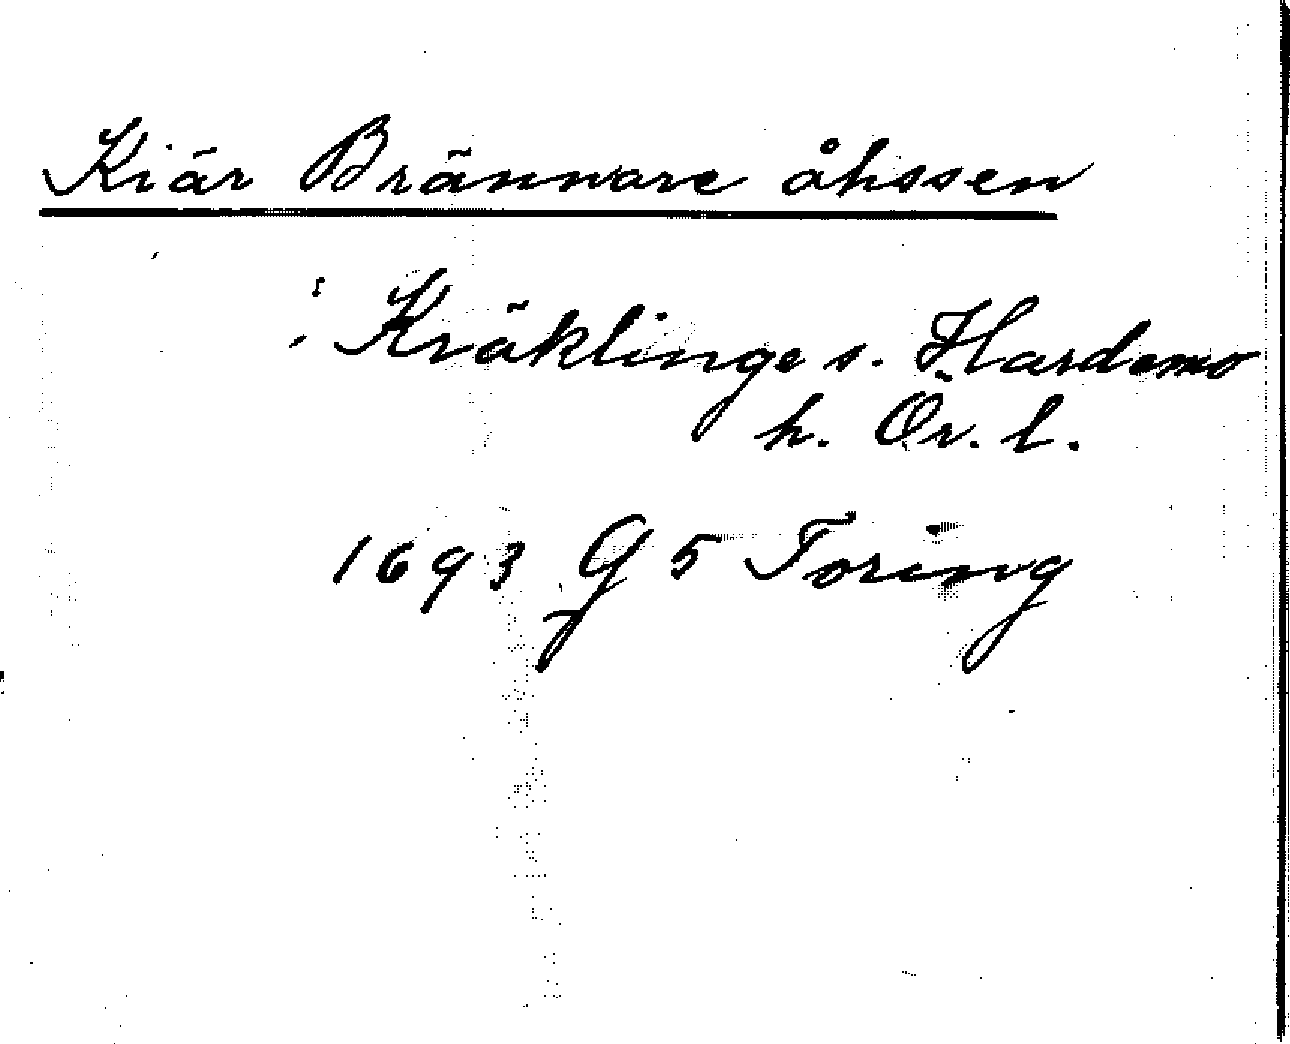 Kiär Brännare åhssen
: Kräklinge s. Hardemo
h. Ör. l.
1693 G 5 Toring